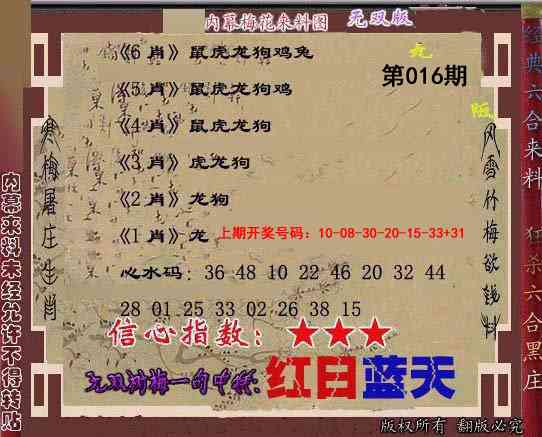 内幕梅花来料图 无双版
《6肖》鼠虎龙狗鸡兔
第016期
《5肖》鼠虎龙狗鸡
《4肖》鼠虎龙狗
《3肖》虎龙狗
《2肖》龙狗
《1肖》龙 上期开奖号码：10-08-30-20-15-33+31
心水码：36 48 10 22 46 20 32 44
28 01 25 33 02 26 38 15
信心指数：★★★
红日蓝天
版权所有 翻版必究
寒梅屠庄生肖
风雪竹梅欲钱料
内幕来料未经允许不得转贴
经典六合来料
狂杀六合黑庄